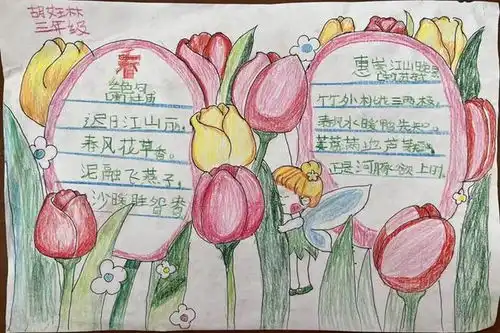 三年级
春
绝句
迟日江山丽,
春风花草香。
泥融飞燕子,
沙暖睡鸳鸯
惠崇江山晚景
竹外桃花三两枝,
春江水暖鸭先知。
蒌蒿满地芦芽短,
正是河豚欲上时,